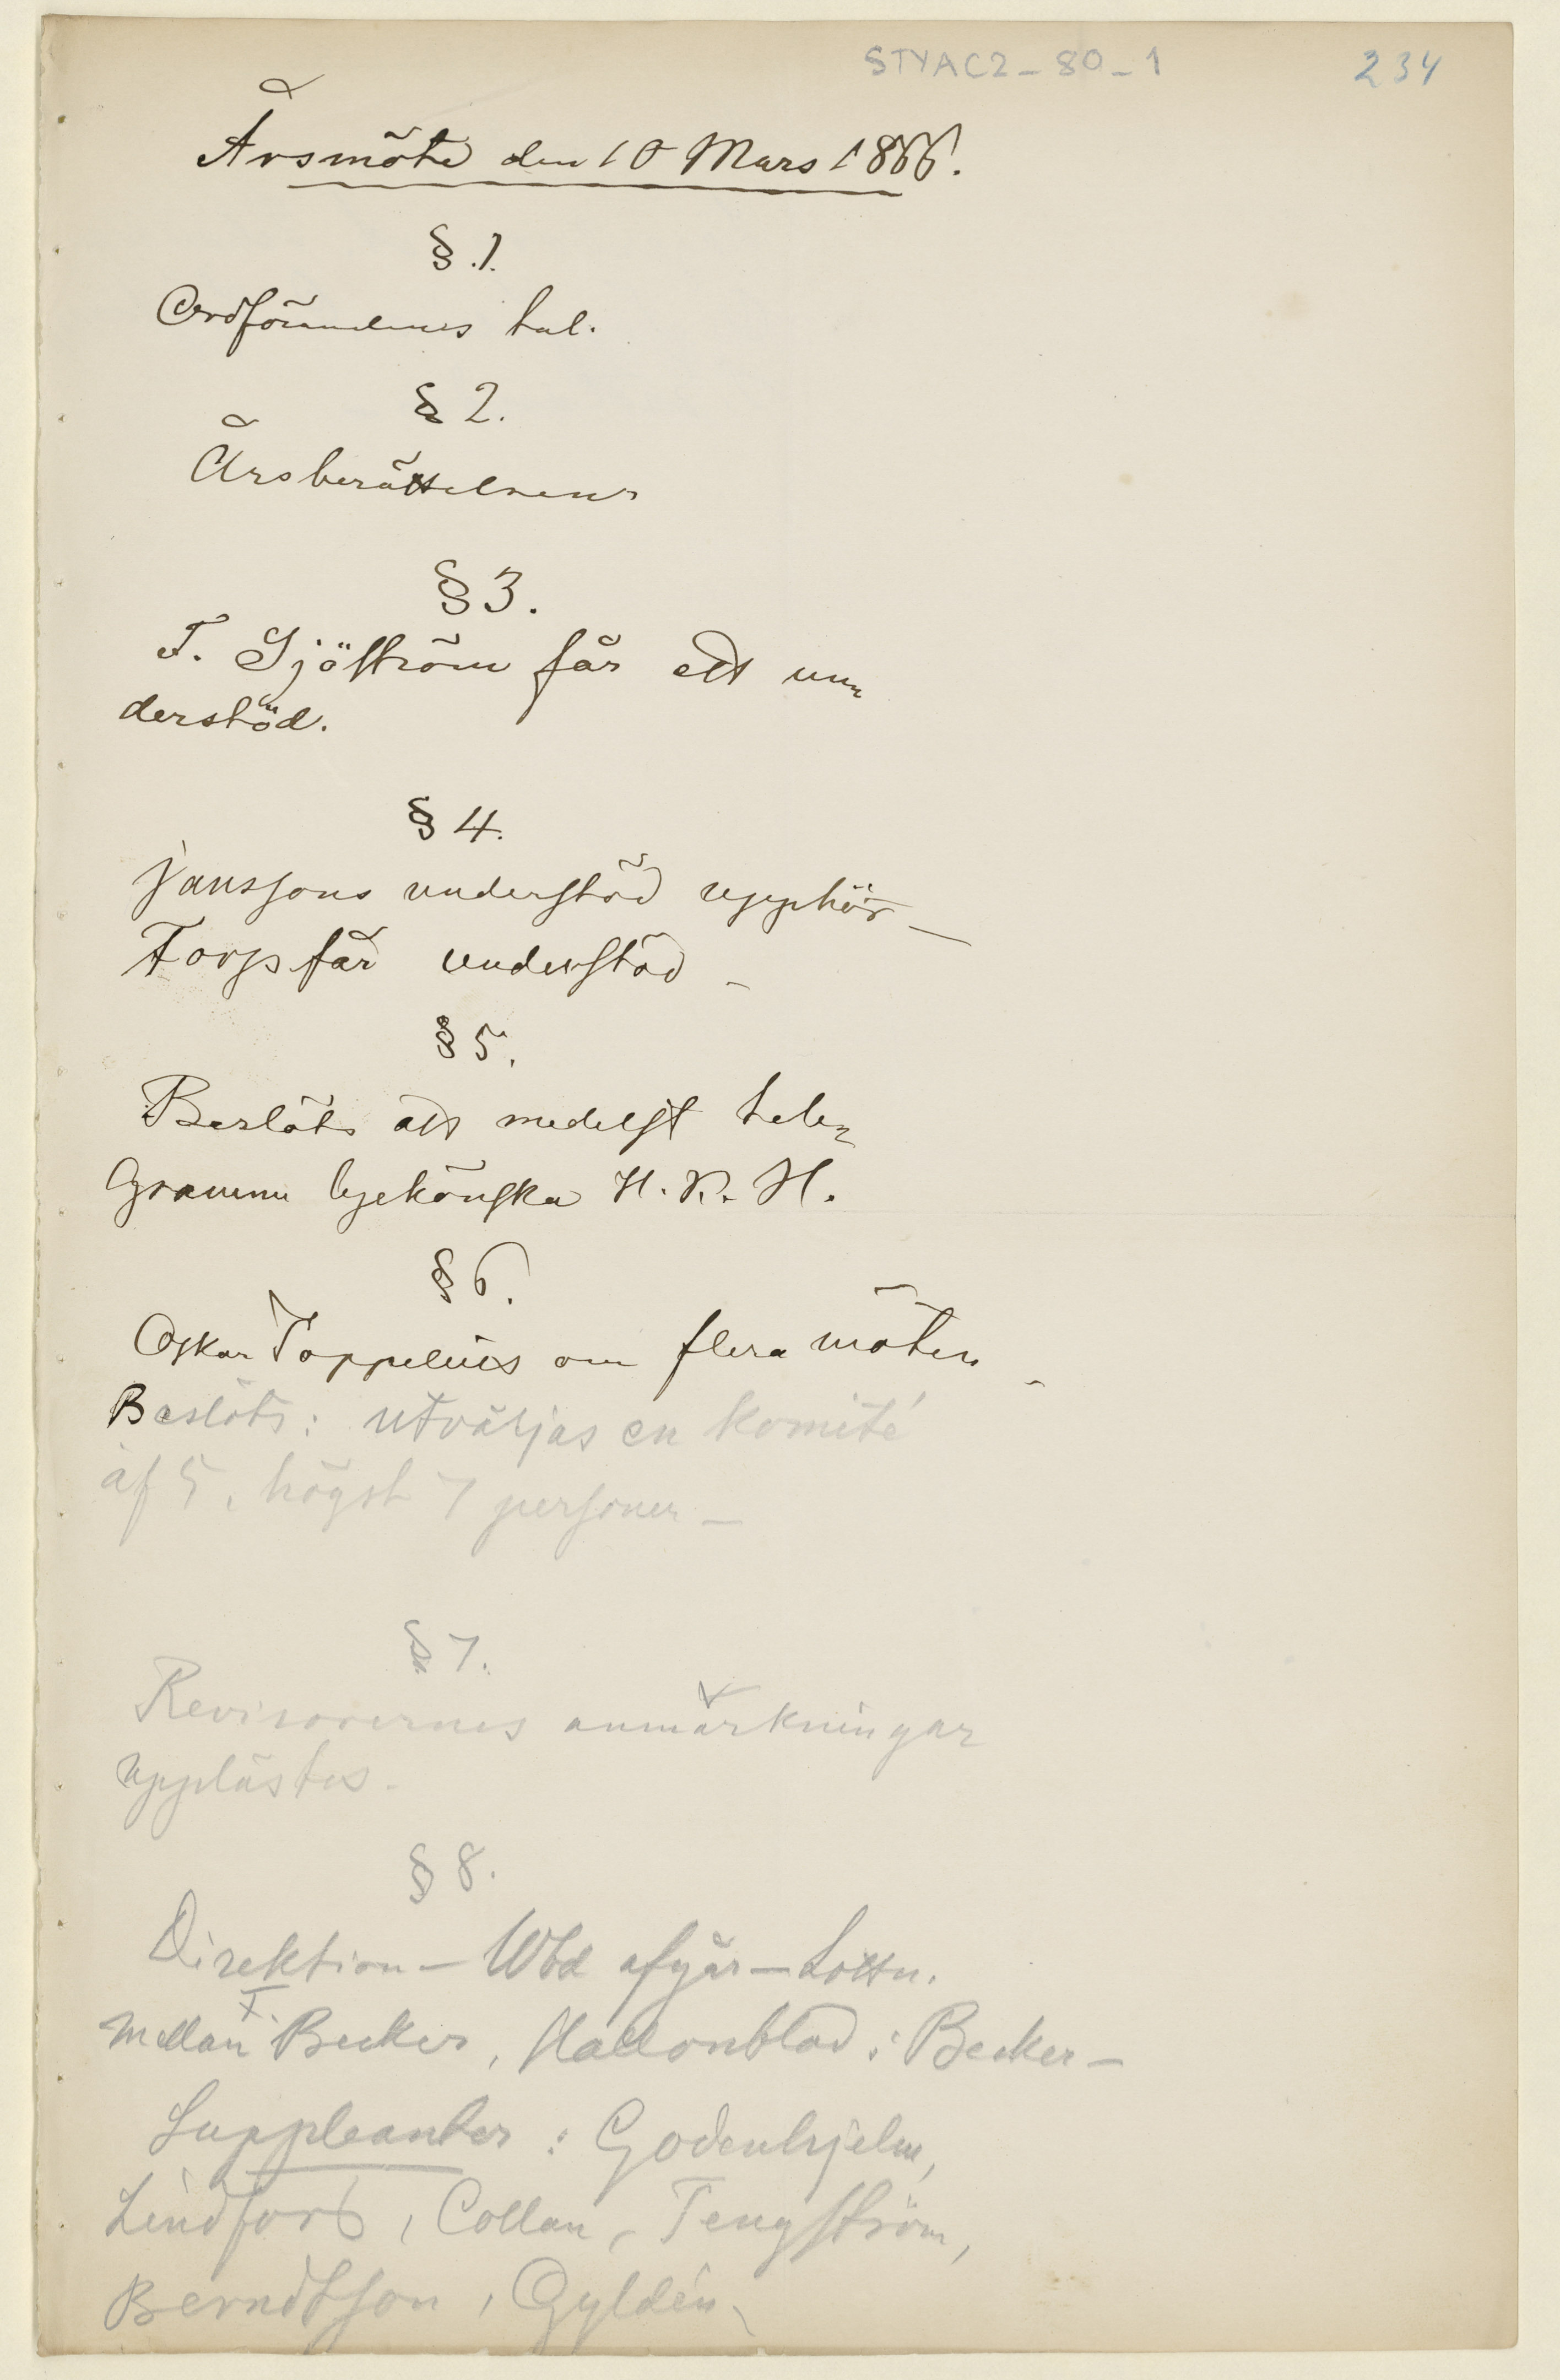 STYAC2-80-1 234
Årsmöte den 10 Mars 1866.
§.1.
Ordförandenes tal.
§ 2.
Årsberättelsen
§ 3.
F. Sjöström får ett un-
derstöd.
§ 4.
Janssons understöd upphör –
Forss får understöd –
§ 5.
Beslöts att medelst tele-
gramm lyckönska H. K. H.
§ 6.
Oskar Toppelius om flera möten –
Beslöts: utväljas en komité
af 5, högst 7 personer –
§ 7.
Revisorernes anmärkningar
upplästes.
§ 8.
Direktion – Wbd afgår – Lottn.
mellan F. Becker, Hallonblad: Becker –
Suppleanter: Godenhjelm,
Lindfors, Collan, Tengström,
Berndtson, Gyldén